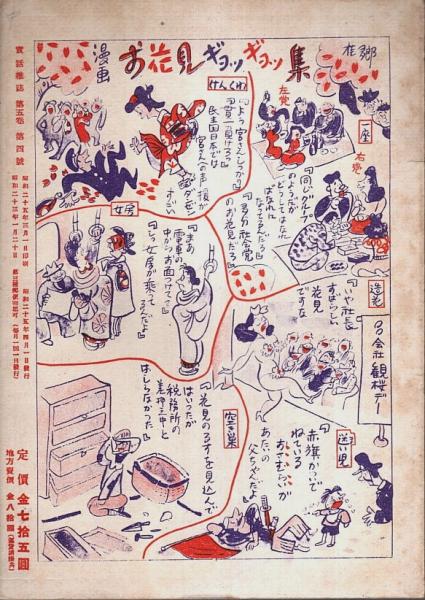 漫画
お花見ギョッギョッ集
一座
左党
右党
『同じグループ
のようだが
どうしてあんなに
はなれに
なってゐんだろ』
『多分社会党
のお花見だろ』
けんくわ
『よう宮さんしつかり』
『貫一負けるな』
民主国日本では
宮さんへの声援が
ダンゼン
女房
『まあ
電車の
中からお面つけてて』
『いや女房が乗って
るんだよ』
造花
〇〇会社観桜デー
『いや社長
すばらしい
花見
ですな』
迷い児
『赤旗かついで
ねている
おさむらいが
あたいの
父ちゃんだい』
空き巣
『花見のるすを見込んで
はいつたが
税務所の
差押え中と
はしらなかつた』
實話雑誌 第五巻 第四號
昭和二十五年三月一日印刷 昭和二十五年四月一日發行
昭和二十三年一月二十日 第三種郵便物認可(毎月一回一日發行)
定價金七拾五圓
地方賣價 金八拾圓